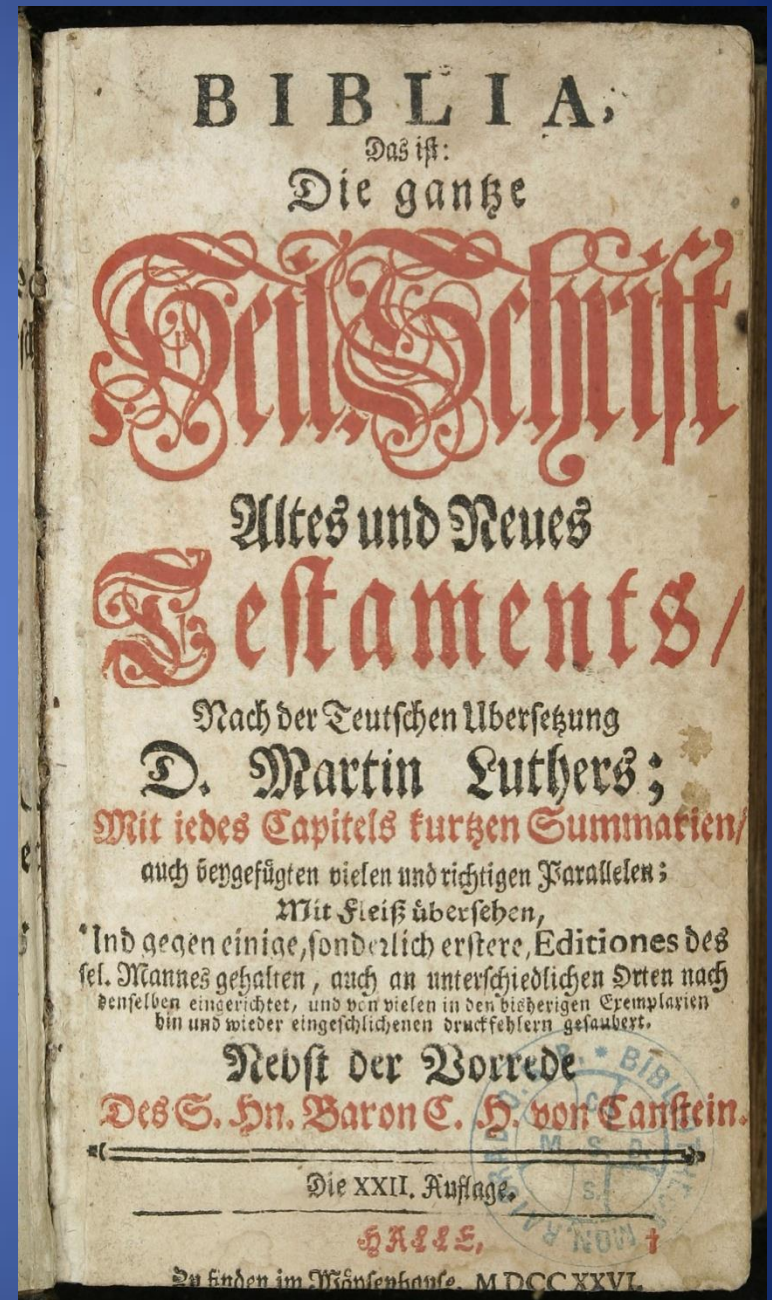 BIBLIA,
Das ist:
Die gantze
Heil. Schrift
Altes und Neues
Testaments/
Nach der Teutschen Ubersetzung
D. Martin Luthers;
Mit jedes Capitels kurtzen Summarien/
auch beygefügten vielen und richtigen Parallelen;
Mit Fleiß übersehen,
Und gegen einige, sonderlich erstere, Editiones des
sel. Mannes gehalten, auch an unterschiedlichen Orten nach
denselben eingerichtet, und von vielen in den bisherigen Exemplarien
hin und wieder eingeschlichenen druckfehlern gesaubert.
Nebst der Vorrede
Des S. Hn. Baron C. H. von Canstein.
Die XXII. Auflage.
HALLE,
Zu finden im Wäysenhause. MDCCXXVI.